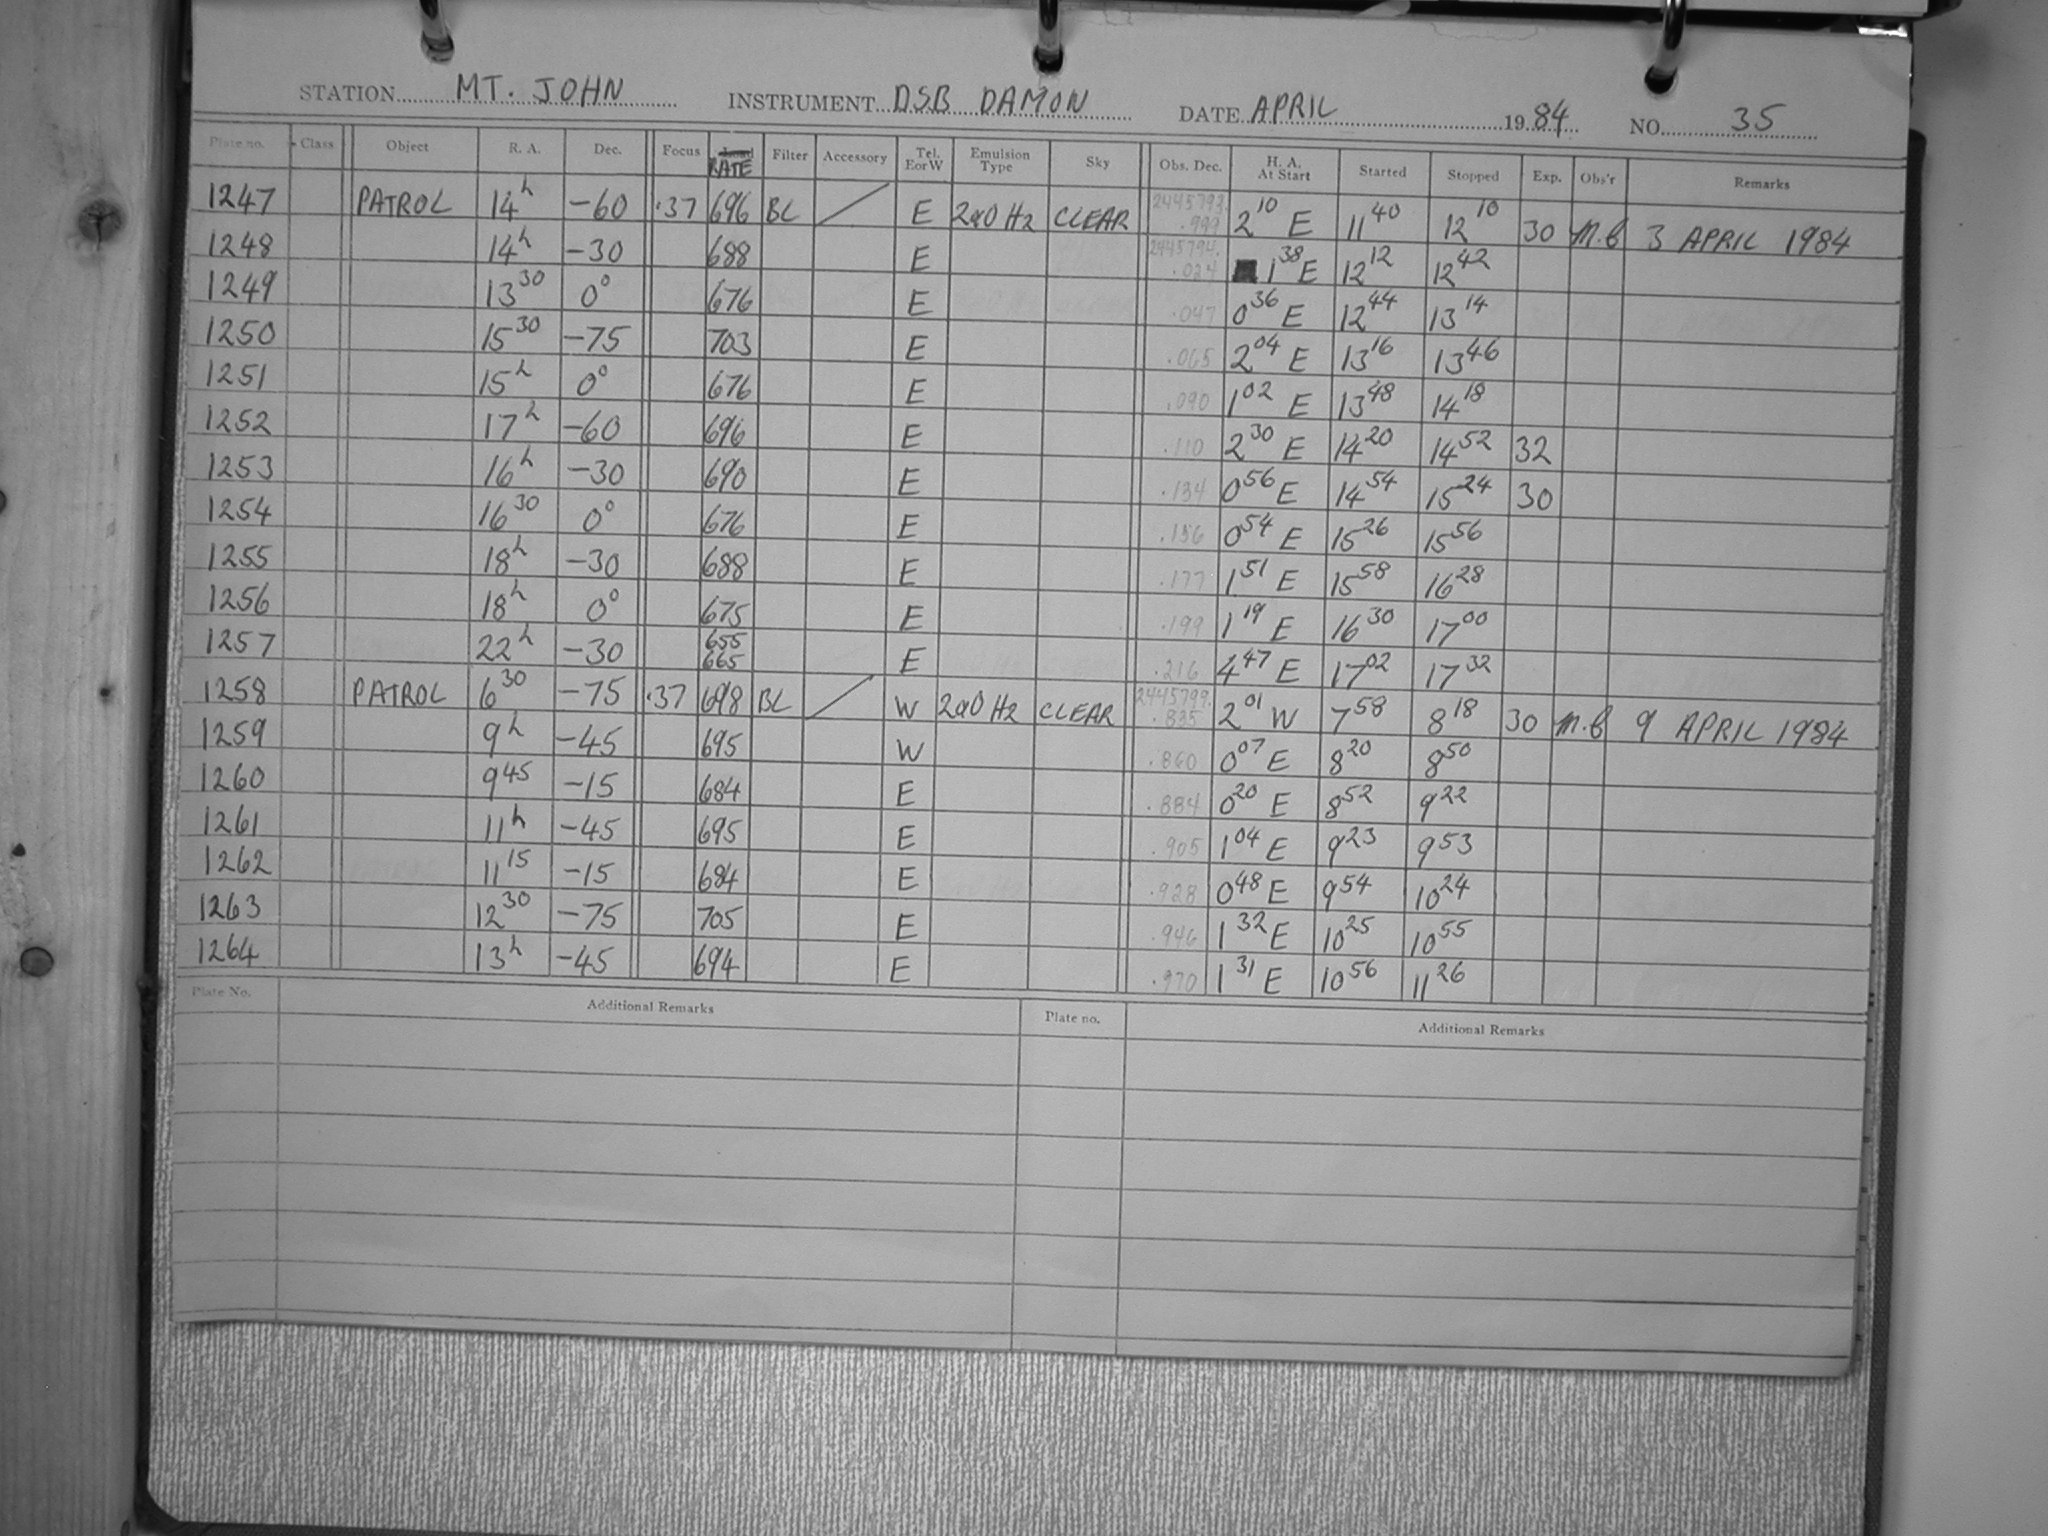 STATION MT. JOHN INSTRUMENT DSB DAMON DATE APRIL 1984 NO. 35
Plate no. Class Object R. A. Dec. Focus RATE Filter Accessory Tel. E or W Emulsion Type Sky Obs. Dec. H. A. At Start Started Stopped Exp. Obs'r Remarks
1247 PATROL 14h -60 .37 696 BL E 2a0 H2 CLEAR 2445793. .999 2 10 E 11 40 12 10 30 M.C 3 APRIL 1984
1248 14h -30 688 E 2445794. .024 1 38 E 12 12 12 42
1249 13 30 0° 676 E .047 0 36 E 12 44 13 14
1250 15 30 -75 703 E .065 2 04 E 13 16 13 46
1251 15h 0° 676 E .090 1 02 E 13 48 14 18
1252 17h -60 696 E .110 2 30 E 14 20 14 52 32
1253 16h -30 690 E .134 0 56 E 14 54 15 24 30
1254 16 30 0° 676 E .156 0 54 E 15 26 15 56
1255 18h -30 688 E .177 1 51 E 15 58 16 28
1256 18h 0° 675 E .199 1 19 E 16 30 17 00
1257 22h -30 655 665 E .216 4 47 E 17 02 17 32
1258 PATROL 6 30 -75 .37 698 BL W 2a0 H2 CLEAR 2445799. .835 2 01 W 7 58 8 18 30 M.C 9 APRIL 1984
1259 9h -45 695 W .860 0 07 E 8 20 8 50
1260 9 45 -15 684 E .884 0 20 E 8 52 9 22
1261 11h -45 695 E .905 1 04 E 9 23 9 53
1262 11 15 -15 684 E .928 0 48 E 9 54 10 24
1263 12 30 -75 705 E .946 1 32 E 10 25 10 55
1264 13h -45 694 E .970 1 31 E 10 56 11 26
Plate No. Additional Remarks Plate no. Additional Remarks